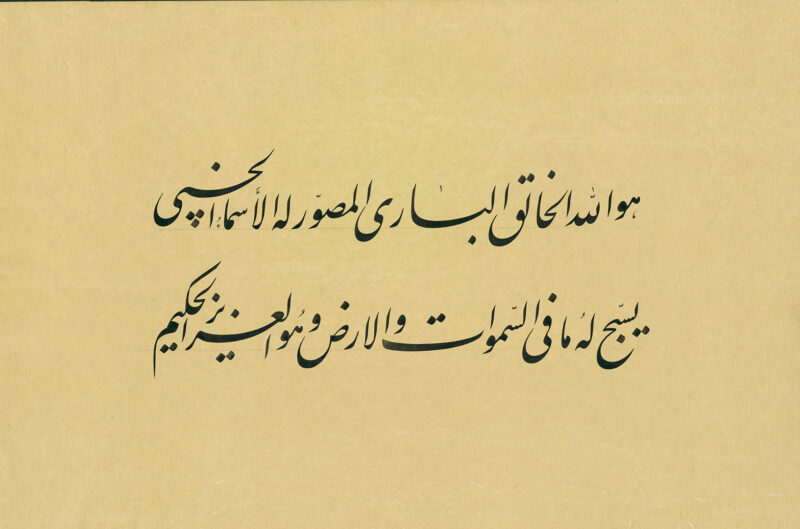 هو الله الخالق البارئ المصوّر له الأسماء الحسنى
يسبّح لهُ ما فى السّموات والارض وهُو العزيز الحكيم